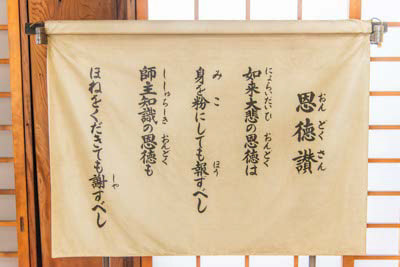 恩徳讃
おんどくさん
如来大悲の恩徳は
にょらいだいひ おんどく
身を粉にしても報ずべし
み こ ほう
師主知識の恩徳も
ししゅちしき おんどく
ほねをくだきても謝すべし
しゃ